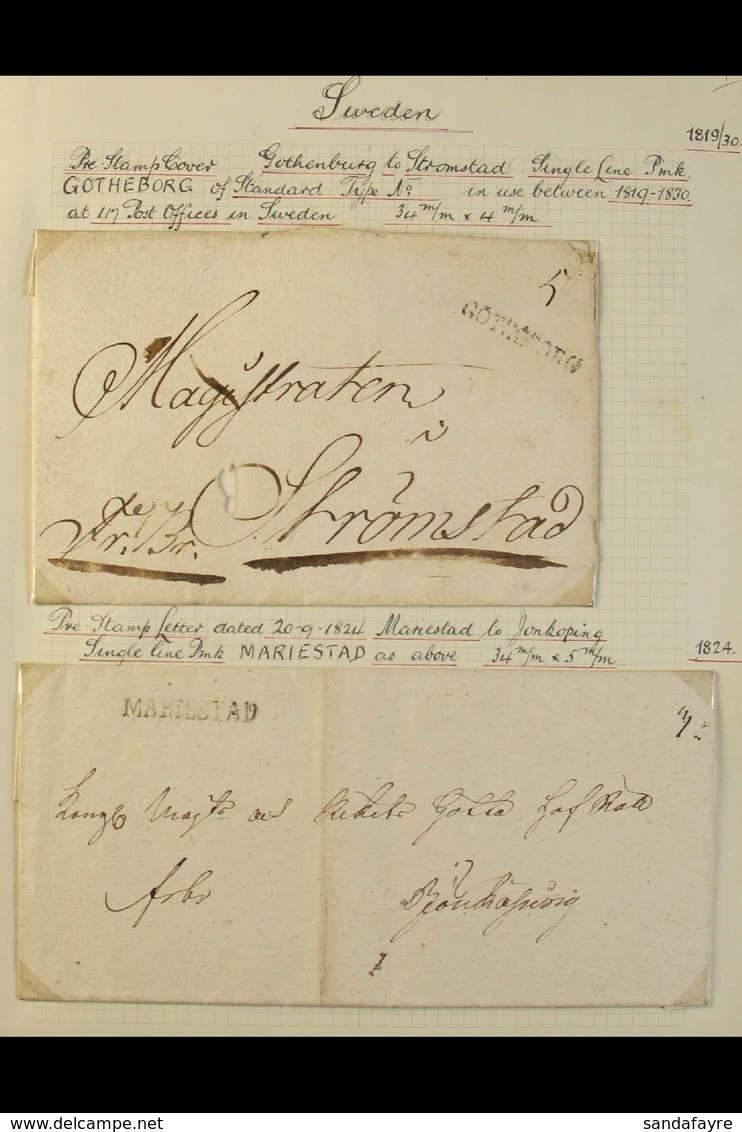 Sweden
1819/30.
Pre-Stamp Cover Gothenburg to Stromstad Single Line Pmk.
GOTHEBORG of Standard Type No. in use between 1819-1830.
at 117 Post Offices in Sweden 34 m/m x 4 m/m
5
GÖTHEBORG
Magistraten
i
Strömstad
Fr. Br.
Pre-Stamp Letter dated 20-9-1824 Mariestad to Jonkoping
Single line Pmk MARIESTAD as above 34 m/m x 5 m/m
1824.
MARIESTAD
Kongl Majts och Rikets Götha Hof Rätt
Jönköping
delcampe.net
sandafayre